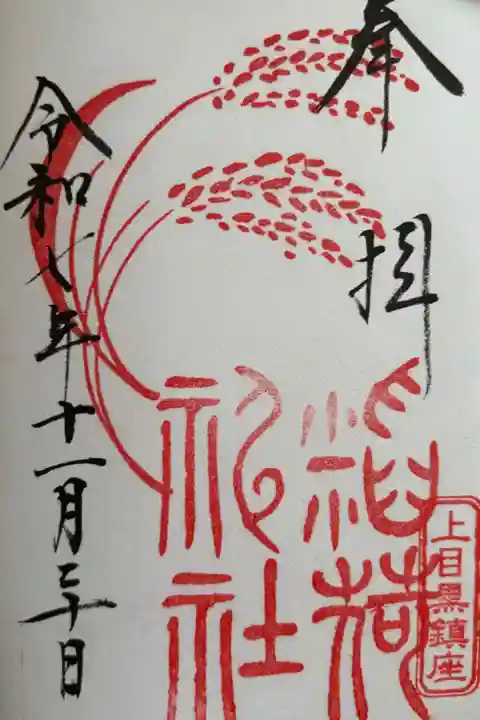 奉拝
上目黒鎮座
稲荷
神社
令和七年十一月二十日